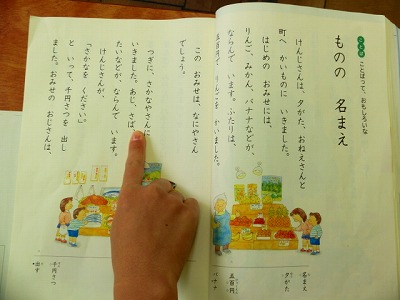 ことば
ことばって、おもしろいな
ものの 名まえ
けんじさんは、夕がた、おねえさんと
町へ かいものに いきました。
はじめの おみせには、
りんご、みかん、バナナなどが、
ならんで います。ふたりは、
五百円で りんごを かいました。
この おみせは、なにやさん
でしょう。
つぎに、さかなやさんに
いきました。あじ、さば、
たいなどが、ならんで います。
けんじさんが、
「さかなを ください。」
と いって、千円さつを 出し
ました。おみせの おじさんは、
名まえ
夕がた
五百円
バナナ
千円さつ
出す